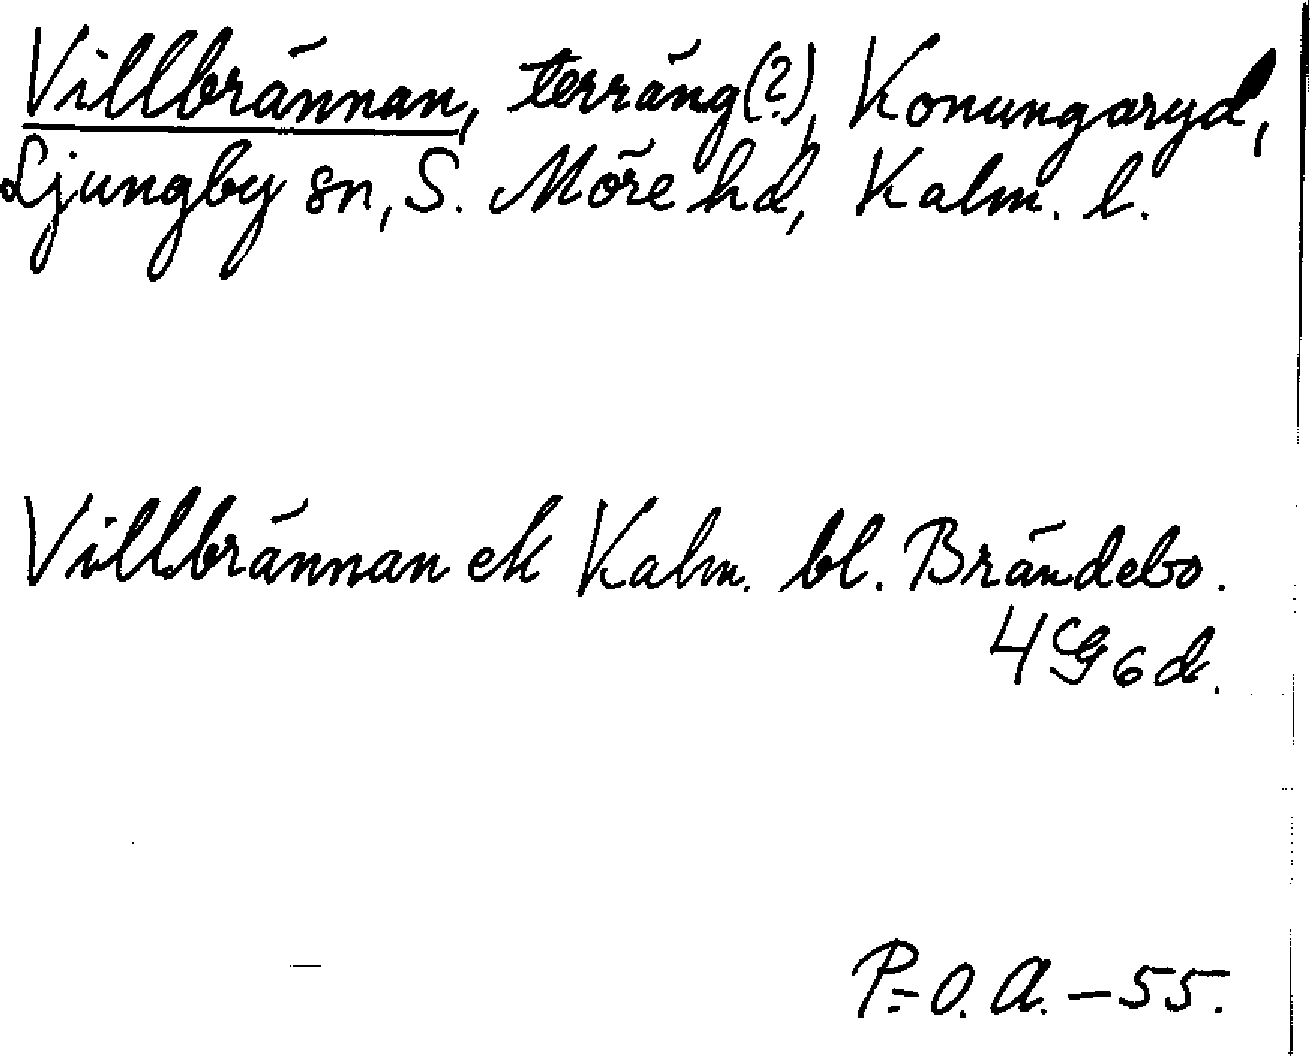 Villbrännan, terräng(?), Konungaryd,
Ljungby sn, S. Möre hd, Kalm. l.
Villbrännan ek Kalm. bl. Brändebo.
4G6d.
P.-O. A. – 55.